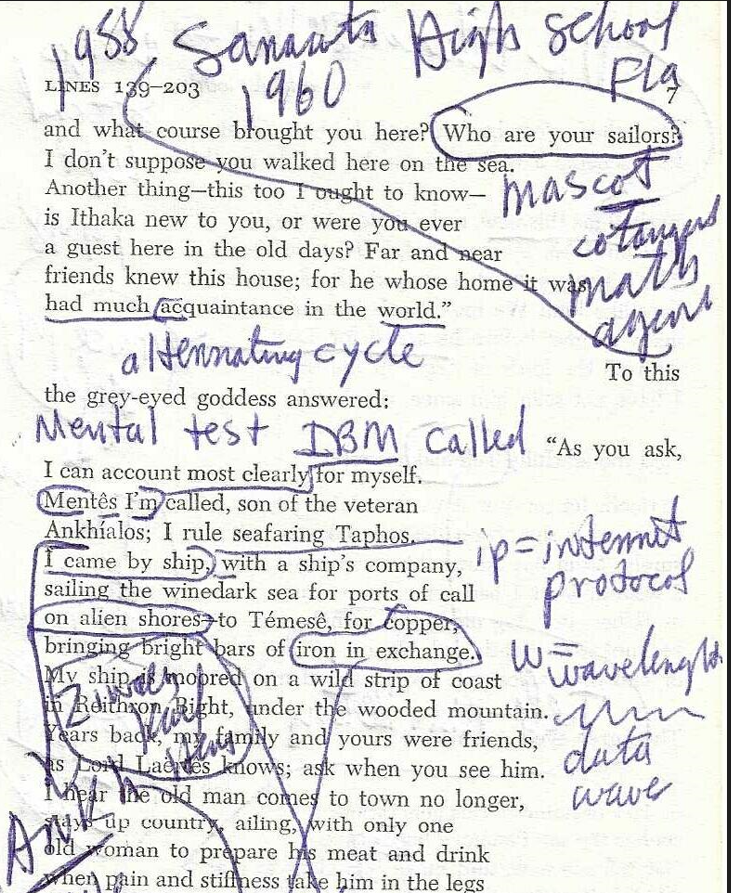 1958 Sarasota High School
1960 Fla
LINES 139–203 7
and what course brought you here? Who are your sailors?
I don't suppose you walked here on the sea.
Another thing—this too I ought to know— mascot
is Ithaka new to you, or were you ever
a guest here in the old days? Far and near
friends knew this house; for he whose home it was math
had much acquaintance in the world."
alternating cycle
To this
the grey-eyed goddess answered:
Mental test IBM called
"As you ask,
I can account most clearly for myself.
Mentês I'm called, son of the veteran
Ankhíalos; I rule seafaring Taphos.
I came by ship, with a ship's company, ip = internet
sailing the winedark sea for ports of call protocol
on alien shores—to Témesê, for copper,
bringing bright bars of iron in exchange. W =
My ship is moored on a wild strip of coast wavelength
in Reithron Bight, under the wooded mountain.
Years back, my family and yours were friends, data
as Lord Laërtês knows; ask when you see him. wave
I hear the old man comes to town no longer,
stays up country, ailing, with only one
old woman to prepare his meat and drink
when pain and stiffness take him in the legs